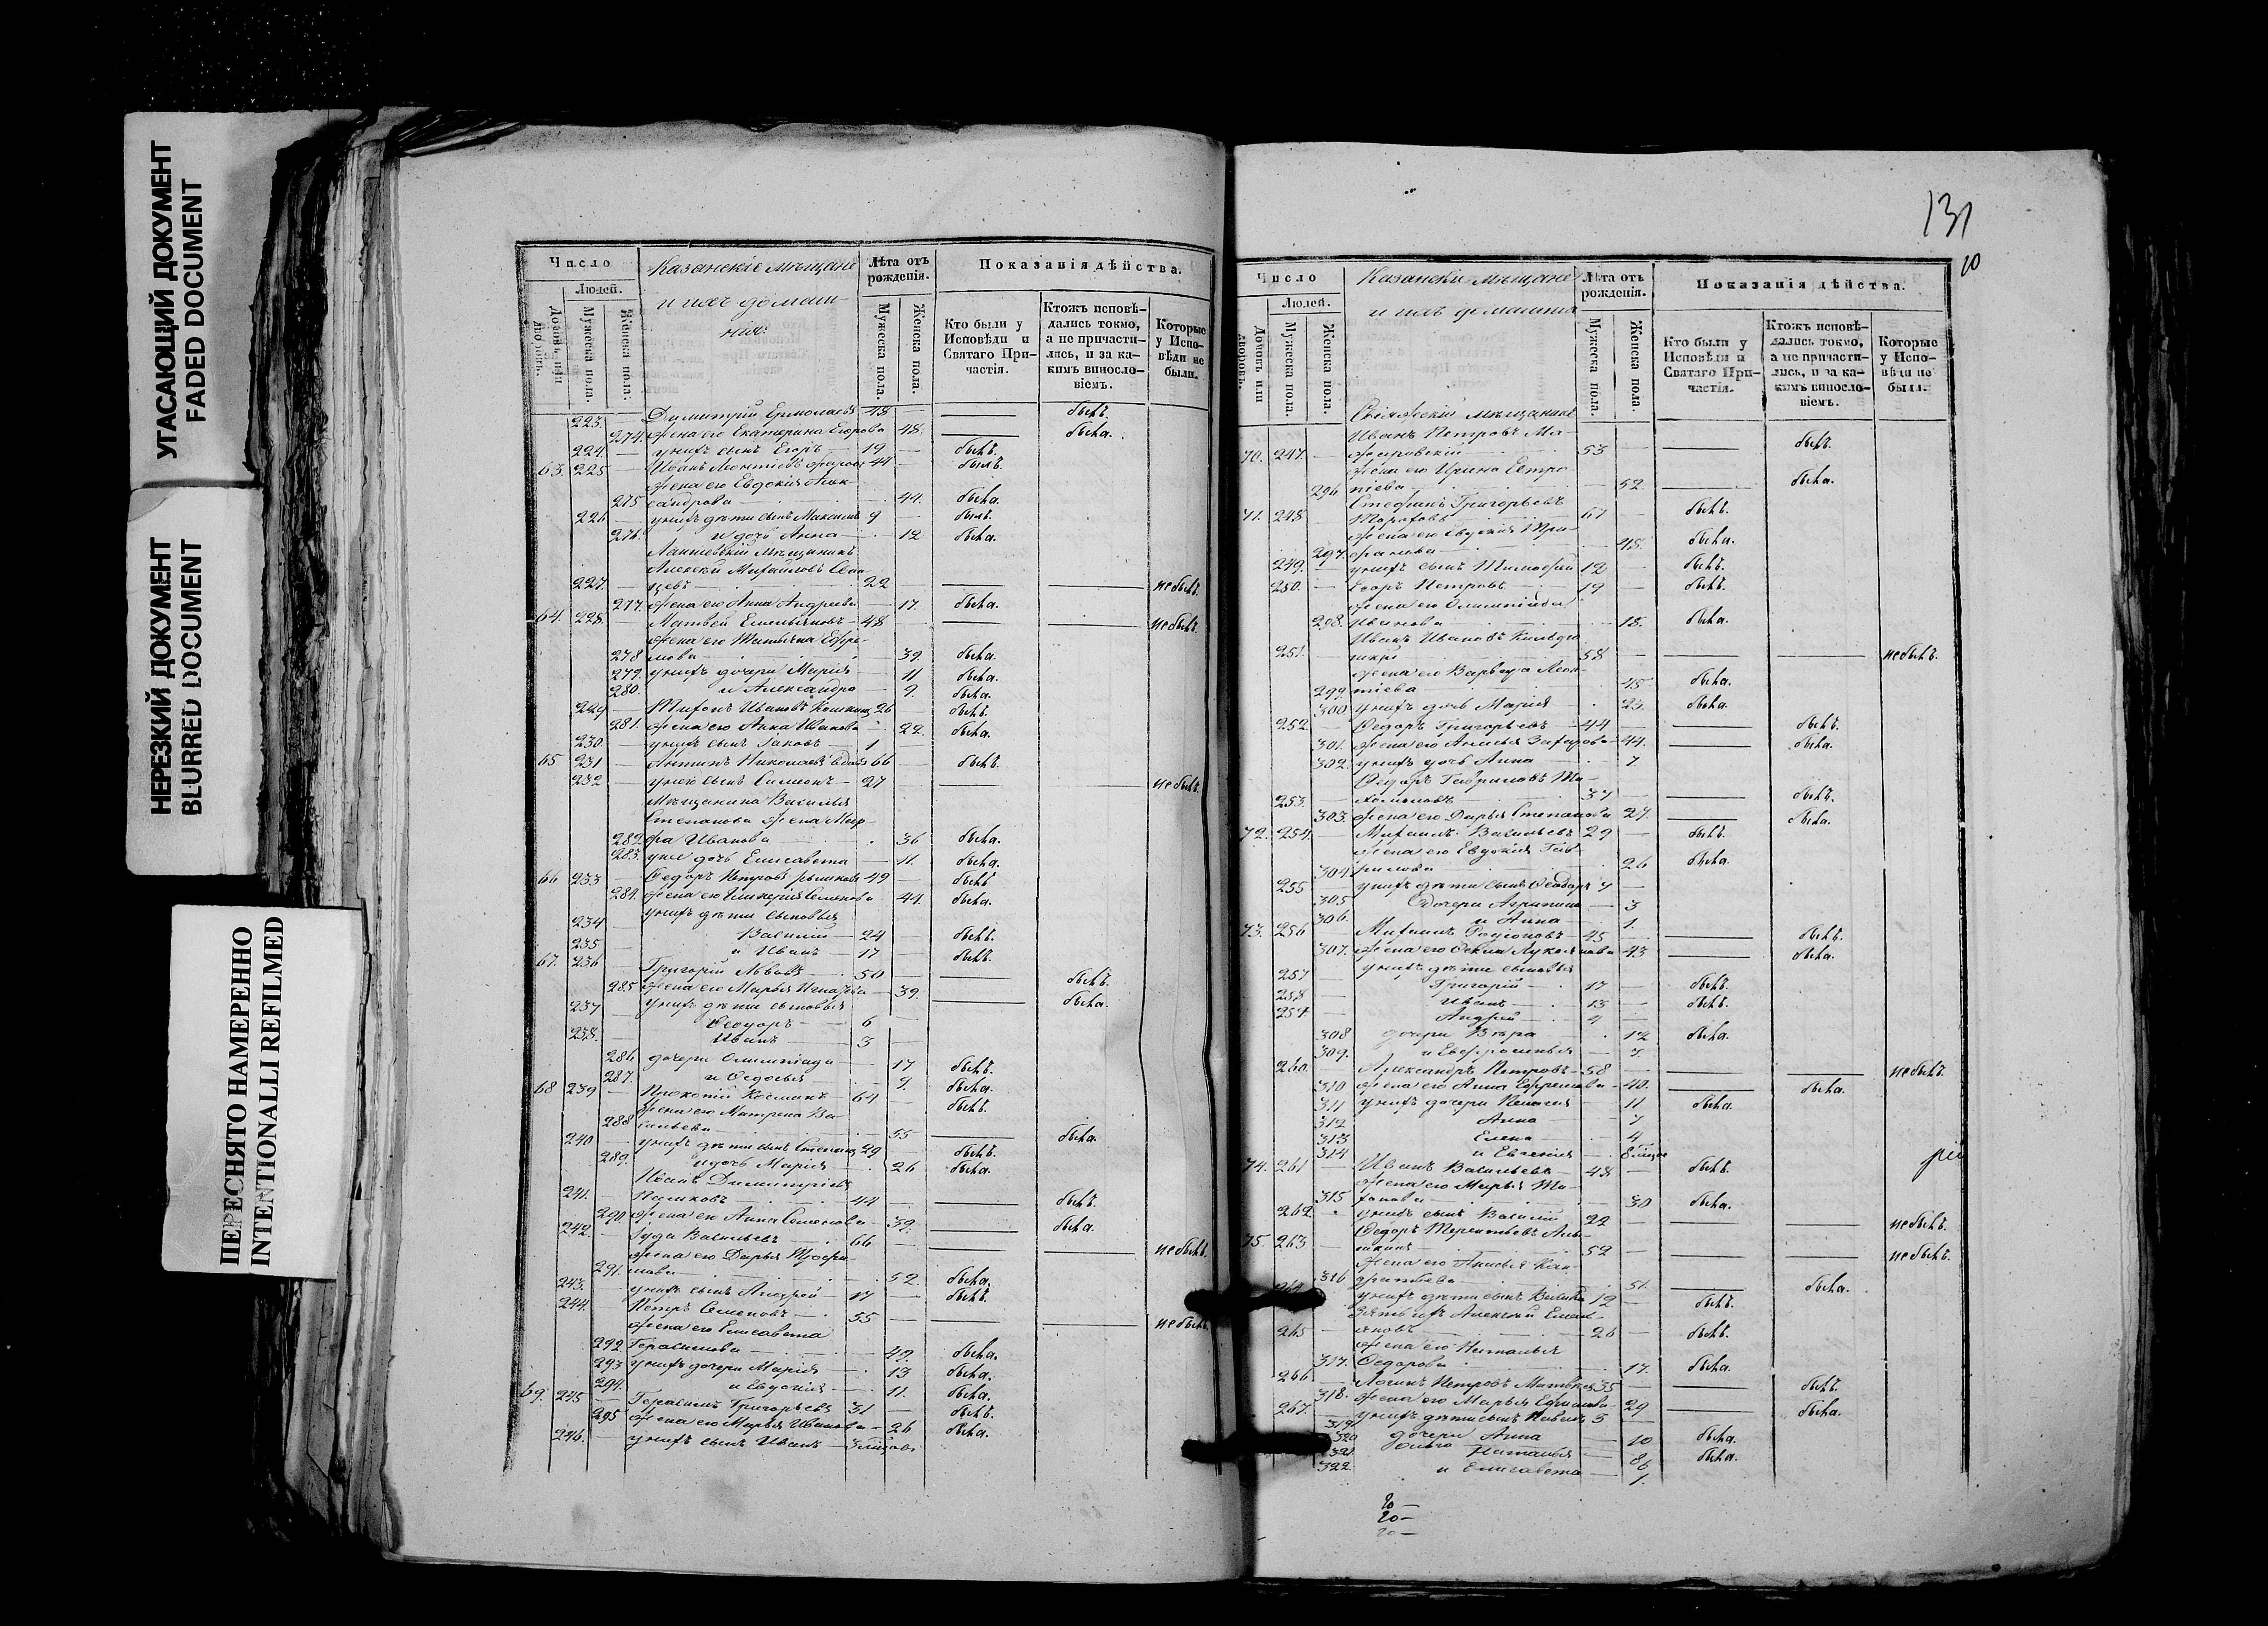 УГАСАЮЩИЙ ДОКУМЕНТ
FADED DOCUMENT
НЕРЕЗКИЙ ДОКУМЕНТ
BLURRED DOCUMENT
ПЕРЕСНЯТО НАМЕРЕННО
INTENTIONALLI REFILMED
Число
Людей.
Домовъ или дворовъ.
Мужеска пола.
Женска пола.
Казанскіе мѣщане
и ихъ домаш-
нія:
Лѣта отъ рожденія.
Мужеска пола.
Женска пола.
Показанія дѣйства.
Кто были у Исповѣди и Святаго При-частія.
Ктожъ исповѣ-дались токмо, а не причасти-лись, и за ка-кимъ виносло-віемъ.
Которые у Испо-вѣди не были.
223. — Димитрій Ермолаевъ 48 — былъ.
274. жена его Екатерина Егорова 48. была.
224 — у нихъ сынъ Егоръ — 19 — былъ.
63. 225 — Иванъ Леонтіевъ 44 — былъ.
жена его Евдокія Алек-
275 сандрова 44. была.
226 у нихъ дѣти сынъ Максимъ 9 былъ.
276. и дочь Анна 12 была.
Лаишевскій мѣщанинъ
Алексѣй Михайловъ
227. 22 не былъ.
277. жена его Анна Андреева 17. была.
64. 228. Матвей Емельяновъ 48 не былъ.
жена его Татьяна Ефре-
278 мова 39. была.
279. у нихъ дочери Марія 11 была.
280. и Александра 9. была.
229 Тихонъ Ивановъ 26 былъ.
281. жена его Анна Иванова 22. была.
230. у нихъ сынъ Іаковъ 1
65 231 Антипъ Николаевъ вдовъ 66 былъ.
232 у него сынъ Симеонъ 27 не былъ.
Мѣщанина Василья
Степанова жена Мар-
282 фа Иванова 36 была.
283. у нее дочь Елисавета 11. была.
66 233 Федоръ Петровъ 49 былъ
284. жена его Гликерія Семенова 44. была.
у нихъ дѣти сыновья
234 Василій 24 былъ.
235 и Иванъ 17 былъ.
67. 236 Григорій Львовъ 50 былъ.
285 жена его Марья Игнатьева 39. была.
у нихъ дѣти сыновья
237 Феодоръ 6
238. Иванъ 3
286. дочери Олимпіада 17 былъ.
287. и Федосья 9. была.
68 239 Прокопій Косминъ 64 былъ.
жена его Матрена Ва-
288 сильева 55 была.
240 у нихъ дѣти сынъ Степанъ 29 былъ.
289. и дочь Марія 26 была.
Иванъ Димитріевъ
241. 44 былъ.
290. жена его Анна Семенова 39. была.
242. Іуда Васильевъ 66 не былъ.
жена его Дарья Трофи-
291. мова 52. была.
243. у нихъ сынъ Андрей 17 былъ.
244. Петръ Семеновъ 55 не былъ.
жена его Елисавета
292 Герасимова 49. была.
293 у нихъ дочери Марія 13 была.
294. и Евдокія 11. была.
69. 245 Герасимъ Григорьевъ 31 былъ.
295 жена его Марья Иванова 26 была.
246. у нихъ сынъ Иванъ
131
10
Число
Людей.
Домовъ или дворовъ.
Мужеска пола.
Женска пола.
Казанскіе мѣщане
и ихъ домашнія
Лѣта отъ рожденія.
Мужеска пола.
Женска пола.
Показанія дѣйства.
Кто были у Исповѣди и Святаго При-частія.
Ктожъ исповѣ-дались токмо, а не причасти-лись, и за ка-кимъ виносло-віемъ.
Которые у Испо-вѣди не были.
Свіяжскій мѣщанинъ
Иванъ Петровъ
70. 247. 53 былъ.
жена его Ирина
296 52. была.
Стефанъ Григорьевъ
71. 248 67 былъ.
жена его Евдокія Три-
297. фонова 45. была.
249. у нихъ сынъ Тимофей 12 былъ.
250. Егоръ Петровъ 19 былъ.
жена его Олимпіада
298. Иванова 18. была.
Иванъ Ивановъ
251. 58 не былъ.
жена его Варвара Леон-
299 тіева 45 была.
300 у нихъ дочь Марія 23. была.
252. Федоръ Григорьевъ 44 былъ.
301. жена его Анисья Захарова 44. была.
302. у нихъ дочь Анна 7
Федоръ Гавриловъ
253. 37 былъ.
303 жена его Дарья Степанова 27. была.
72. 254. Михаилъ Васильевъ 29 былъ.
жена его Евдокія Гав-
304 рилова 26 была.
255 у нихъ дѣти сынъ Феодоръ 7
305 дочери Агрипина 3
306. и Анна 1.
73. 256 Михаилъ Родіоновъ 45 былъ.
307. жена его Фекла 43 была.
у нихъ дѣти сыновья
257 Григорій 17 былъ.
258 Иванъ 13 былъ.
259. Андрей 4
308 дочери Вѣра 12 была.
309. и Евфросинья
260. Александръ Петровъ 58 не былъ.
310 жена его Анна Ефремова 40. была.
311 у нихъ дочери Пелагея 11 была.
312 Анна 7
313 Елена 4
314 и Евгенія
74. 261 Иванъ Васильевъ 48 былъ.
жена его Марья
315 30 была.
262 у нихъ сынъ Василій 22 не былъ.
Федоръ Терентьевъ
75. 263 52 не былъ.
жена его Анисья Кон-
316 дратьева 51. была.
у нихъ дѣти сынъ 12 былъ.
зять ихъ Алексѣй
265 26 былъ.
жена его Наталья
317. Федорова 17. была.
266 Логинъ Петровъ 35 былъ.
318. жена его Марья 29 была.
267. у нихъ дѣти сынъ 3
319 дочери Анна 10 была.
320 Ольга 8 была.
321. Наталья 6
322. и Елисавета 1.
20 —
20 —
20 —